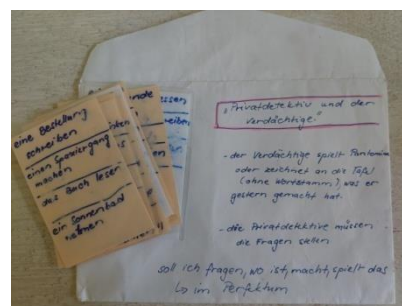 eine Bestellung
schreiben
einen Spaziergang
machen
das Buch lesen
ein Sonnenbad
nehmen
"Privatdetektiv und der
Verdächtige"
- der Verdächtige spielt Pantomime
oder zeichnet an die Tafel
(ohne Wortstamm), was er
gestern gemacht hat.
- die Privatdetektive müssen
die Fragen stellen
soll ich fragen, wo ist, macht, spielt das
↳ im Perfektum